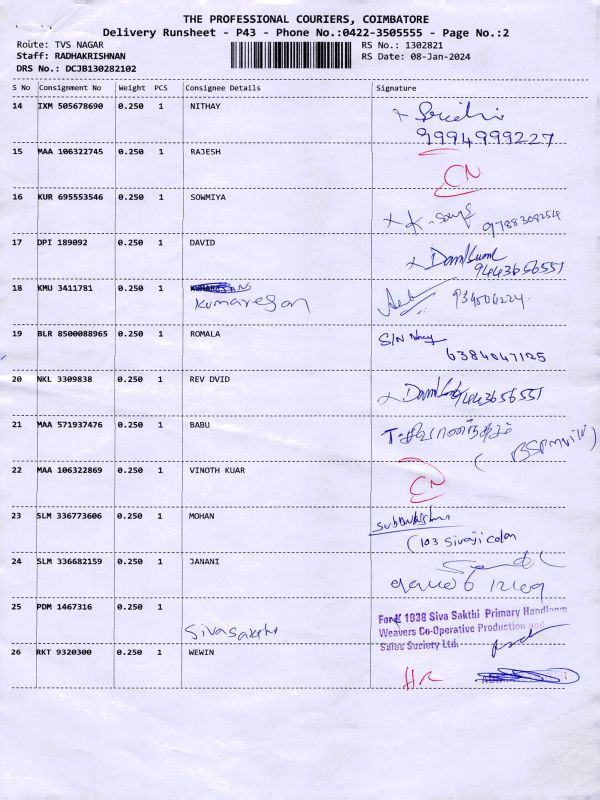 THE PROFESSIONAL COURIERS, COIMBATORE
Delivery Runsheet - P43 - Phone No.:0422-3505555 - Page No.:2
Route: TVS NAGAR RS No.: 1302821
Staff: RADHAKRISHNAN RS Date: 08-Jan-2024
DRS No.: DCJB130282102
S No Consignment No Weight PCS Consignee Details Signature
14 IXM 505678690 0.250 1 NITHAY
9994999227
15 MAA 106322745 0.250 1 RAJESH CN
16 KUR 695553546 0.250 1 SOWMIYA
9788308254
17 DPI 189092 0.250 1 DAVID
9443656551
18 KMU 3411781 0.250 1
Kumaresan
19 BLR 8500088965 0.250 1 ROMALA S/N
6384047125
20 NKL 3309838 0.250 1 REV DVID 9443656551
21 MAA 571937476 0.250 1 BABU
22 MAA 106322869 0.250 1 VINOTH KUAR CN
23 SLM 336773606 0.250 1 MOHAN
(103 Sivaji colon
24 SLM 336682159 0.250 1 JANANI
25 PDM 1467316 0.250 1
Sivasakthi
For K 1938 Siva Sakthi Primary Handloom
Weavers Co-Operative Production and
Sales Society Ltd.
26 RKT 9320300 0.250 1 WEWIN